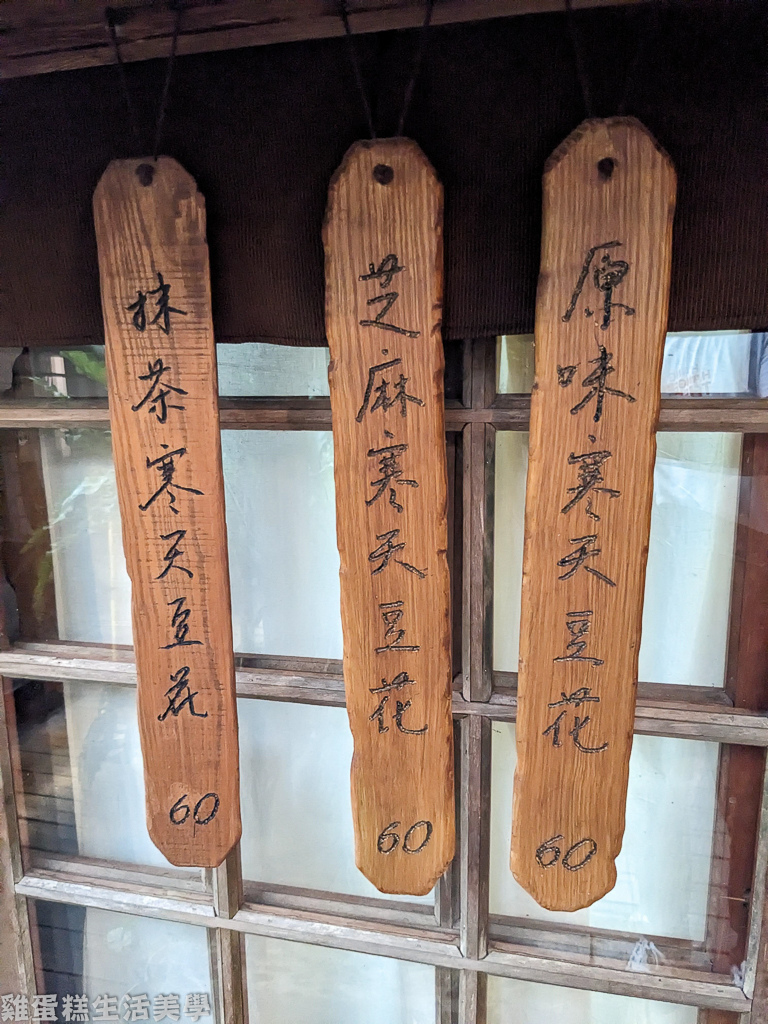 原味寒天豆花
60
芝麻寒天豆花
60
抹茶寒天豆花
60
雞蛋糕生活美學